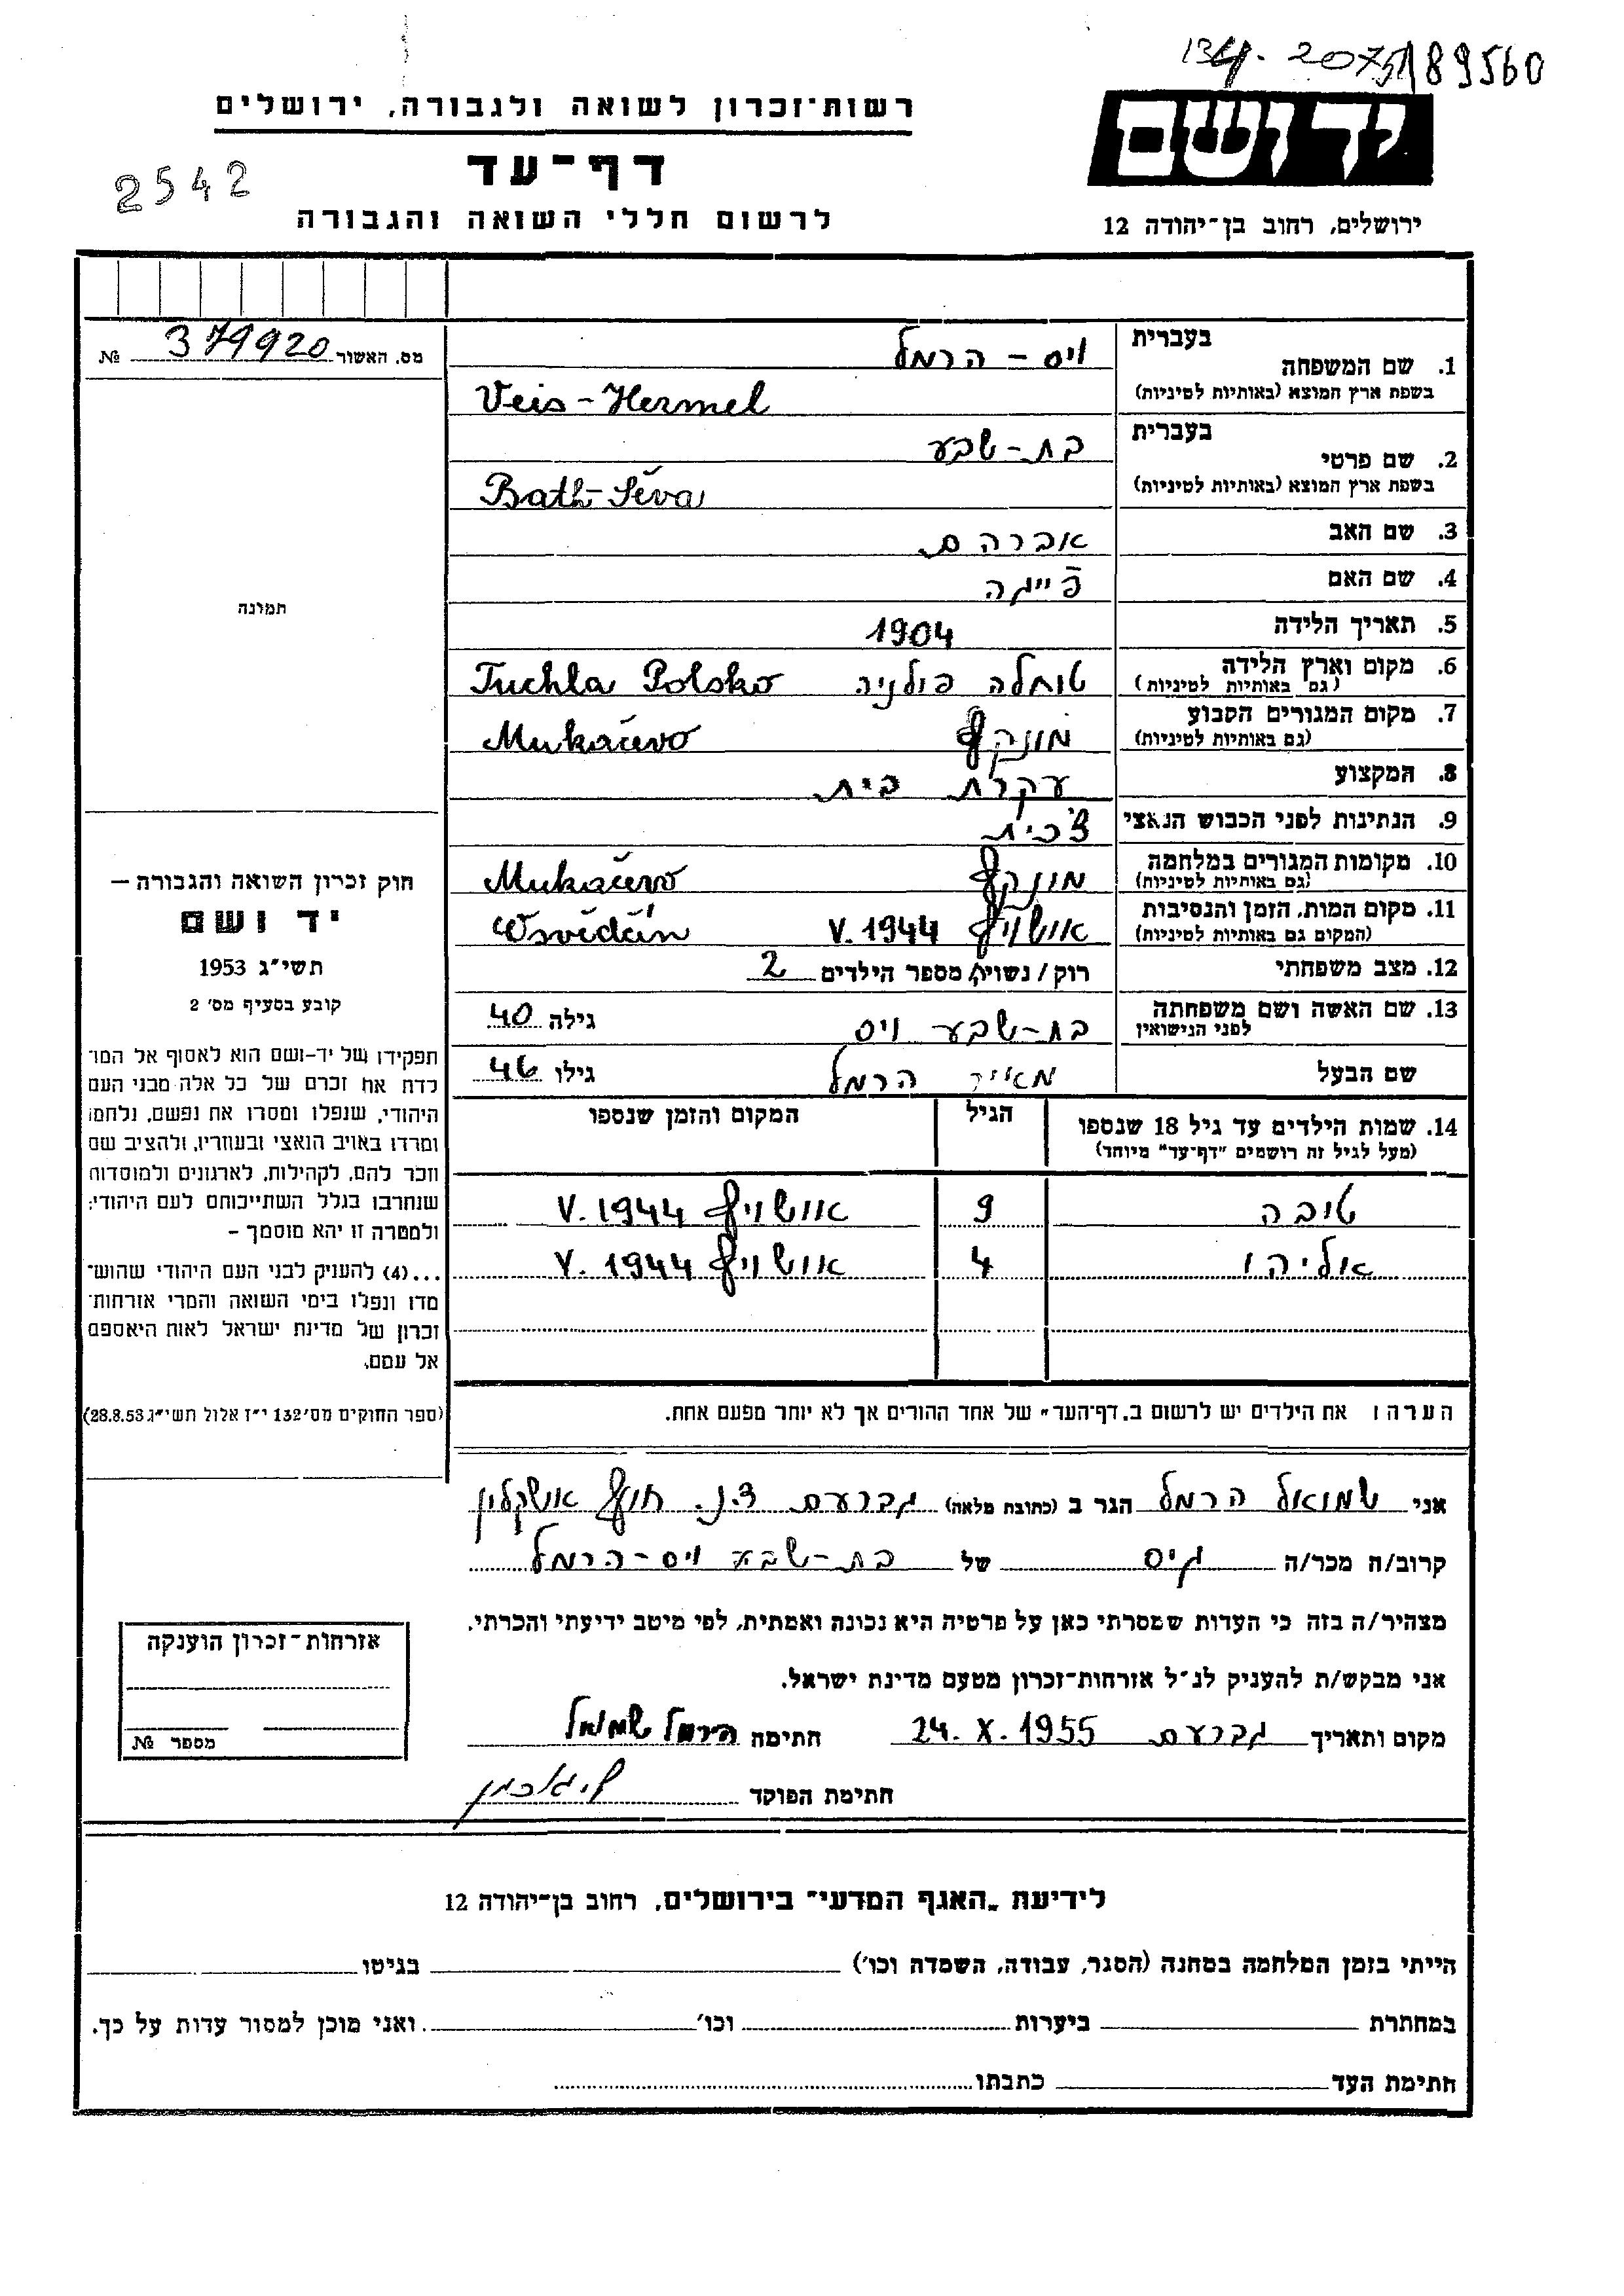 134-2075/89560
יד ושם
ירושלים, רחוב בן־יהודה 12
רשות־זכרון לשואה ולגבורה, ירושלים
דף־עד
לרשום חללי השואה והגבורה
2542
מס. האשור 379920 №
תמונה
חוק זכרון השואה והגבורה —
יד ושם
תשי״ג 1953
קובע בסעיף מס׳ 2
תפקידו של יד-ושם הוא לאסוף אל המו־
לדת את זכרם של כל אלה מבני העם
היהודי, שנפלו ומסרו את נפשם, נלחמו
ומרדו באויב הנאצי ובעוזריו, ולהציב שם
וזכר להם, לקהילות, לארגונים ולמוסדות
שנחרבו בגלל השתייכותם לעם היהודי;
ולמטרה זו יהא מוסמך –
...(4) להעניק לבני העם היהודי שהוש־
מדו ונפלו בימי השואה והמרי אזרחות־
זכרון של מדינת ישראל לאות היאספם
אל עמם.
(ספר החוקים מס׳132 י״ז אלול תשי״ג 28.8.53)
בעברית ויס - הרמל
1. שם המשפחה
בשפת ארץ המוצא (באותיות לטיניות) Veis-Hermel
בעברית בת-שבע
2. שם פרטי
בשפת ארץ המוצא (באותיות לטיניות) Bath-Ševa
3. שם האב אברהם
4. שם האם פייגה
5. תאריך הלידה 1904
6. מקום וארץ הלידה טוחלה פולניה Tuchla Polsko
(גם באותיות לטיניות)
7. מקום המגורים הקבוע מונקץ Mukačevo
(גם באותיות לטיניות)
8. המקצוע עקרת בית
9. הנתינות לפני הכבוש הנאצי צ׳כית
10. מקומות המגורים במלחמה מונקץ Mukačevo
(גם באותיות לטיניות)
11. מקום המות, הזמן והנסיבות אושויץ V. 1944
(המקום גם באותיות לטיניות)
12. מצב משפחתי רוק / נשוי, מספר הילדים 2
13. שם האשה ושם משפחתה בת-שבע ויס גילה 40
לפני הנישואין
שם הבעל מאיר הרמל גילו 46
14. שמות הילדים עד גיל 18 שנספו הגיל המקום והזמן שנספו
(מעל לגיל זה רושמים ״דף־עד״ מיוחד)
טובה 9 אושויץ V. 1944
אליהו 4 אושויץ V. 1944
הערה: את הילדים יש לרשום ב„דף־העד״ של אחד ההורים אך לא יותר מפעם אחת.
אני שמואל הרמל הגר ב (כתובת מלאה) גברעם ד.נ. חוף אשקלון
קרוב/ה מכר/ה גיס של בת-שבע ויס-הרמל
מצהיר/ה בזה כי העדות שמסרתי כאן על פרטיה היא נכונה ואמתית, לפי מיטב ידיעתי והכרתי.
אני מבקש/ת להעניק לנ״ל אזרחות־זכרון מטעם מדינת ישראל.
מקום ותאריך גברעם 24. X. 1955 חתימה הרמל שמואל
חתימת הפוקד
אזרחות־זכרון הוענקה
מספר №
לידיעת „האגף המדעי״ בירושלים, רחוב בן־יהודה 12
הייתי בזמן המלחמה במחנה (הסגר, עבודה, השמדה וכו׳) בגיטו
במחתרת ביערות וכו׳ ואני מוכן למסור עדות על כך.
חתימת העד כתבתו